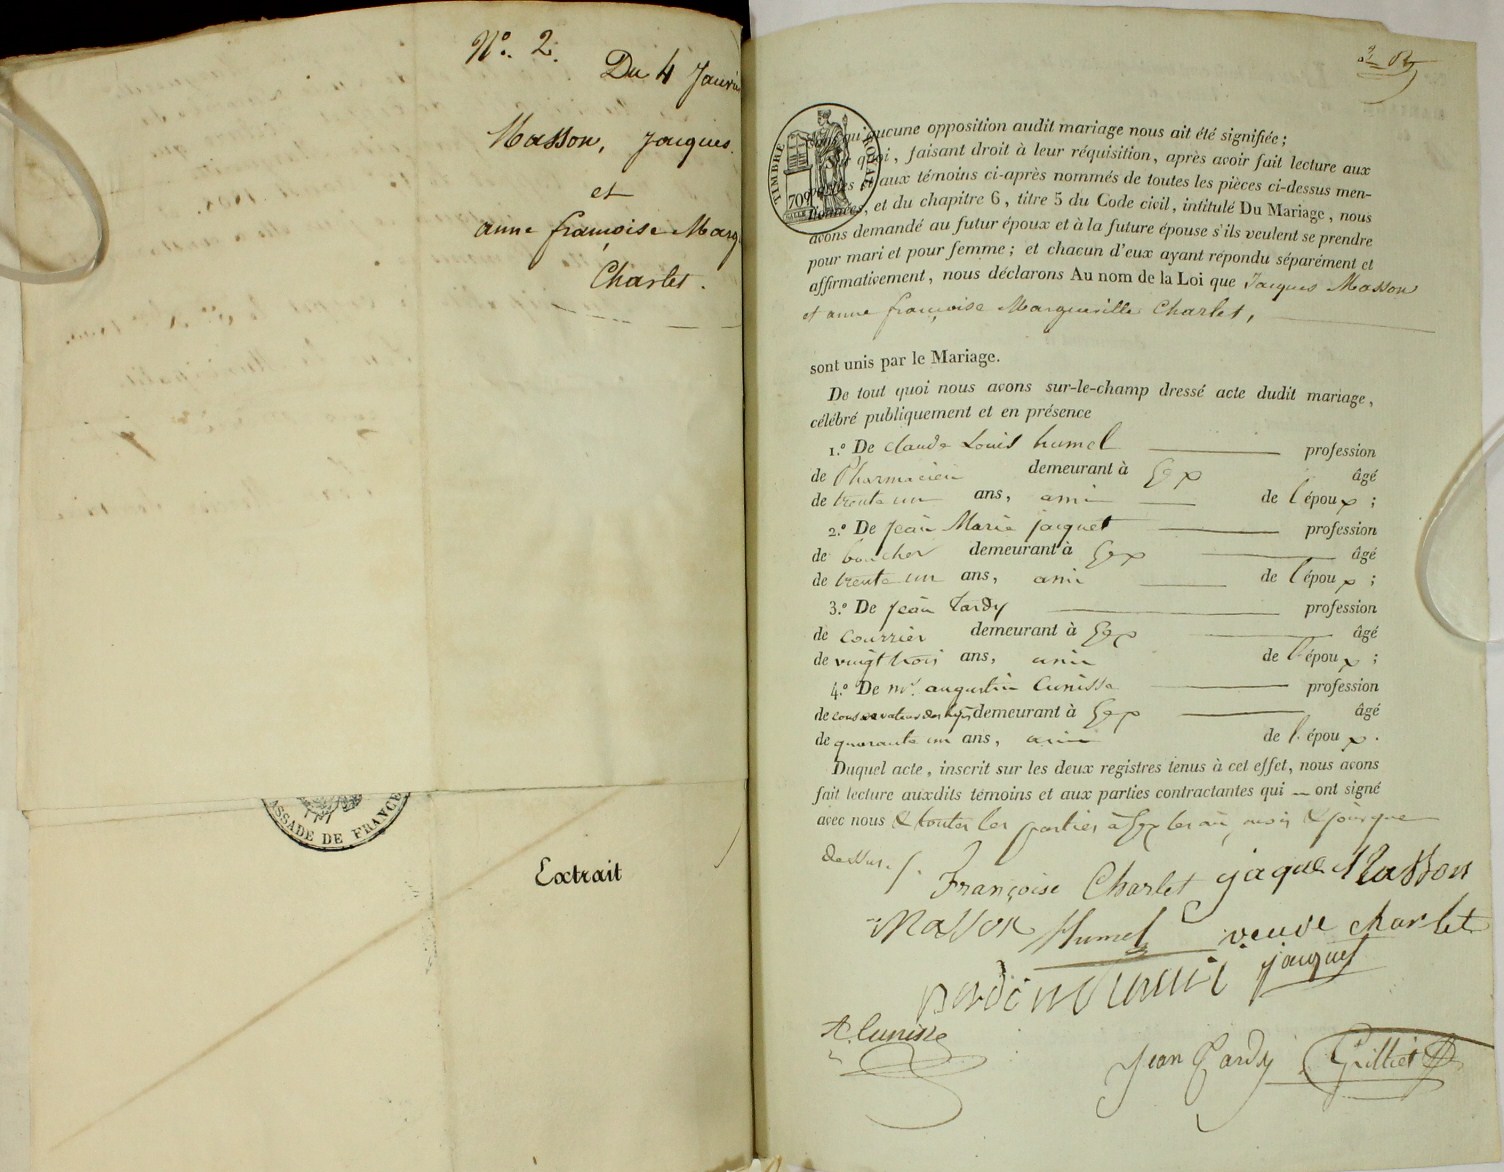 N.° 2.
Du 4 Janvi
Masson, Jacques.
et
anne françoise Marg
Charlet.
ASSADE DE FRANCE
Extrait
TIMBRE ROYAL
709
qu'aucune opposition audit mariage nous ait été signifiée ;
quoi, faisant droit à leur réquisition, après avoir fait lecture aux
parties et aux témoins ci-après nommés de toutes les pièces ci-dessus men-
tionnées, et du chapitre 6, titre 5 du Code civil, intitulé Du Mariage, nous
avons demandé au futur époux et à la future épouse s'ils veulent se prendre
pour mari et pour femme ; et chacun d'eux ayant répondu séparément et
affirmativement, nous déclarons Au nom de la Loi que Jacques Masson
et anne françoise Marguerille Charlet,
sont unis par le Mariage.
De tout quoi nous avons sur-le-champ dressé acte dudit mariage,
célébré publiquement et en présence
1.° De claude Louis humel profession
de Pharmacien demeurant à Gex âgé
de trente un ans, ami de l'époux ;
2.° De Jean Marie jacquet profession
de boucher demeurant à Gex âgé
de trente un ans, ami de l'époux ;
3.° De Jean Tardy profession
de courrier demeurant à Gex âgé
de vingt trois ans, ami de l'époux ;
4.° De mr. augustin Cunisse profession
de conservateur des hyp. demeurant à Gex âgé
de quarante un ans, ami de l'époux.
Duquel acte, inscrit sur les deux registres tenus à cet effet, nous avons
fait lecture auxdits témoins et aux parties contractantes qui ont signé
avec nous & toutes les parties à Gex les an, mois & jour que
dessus.
Françoise Charlet jaque Masson
Masson Humel veuve charlet
jacquet
A. Cunisse
Jean Tardy Grilliet